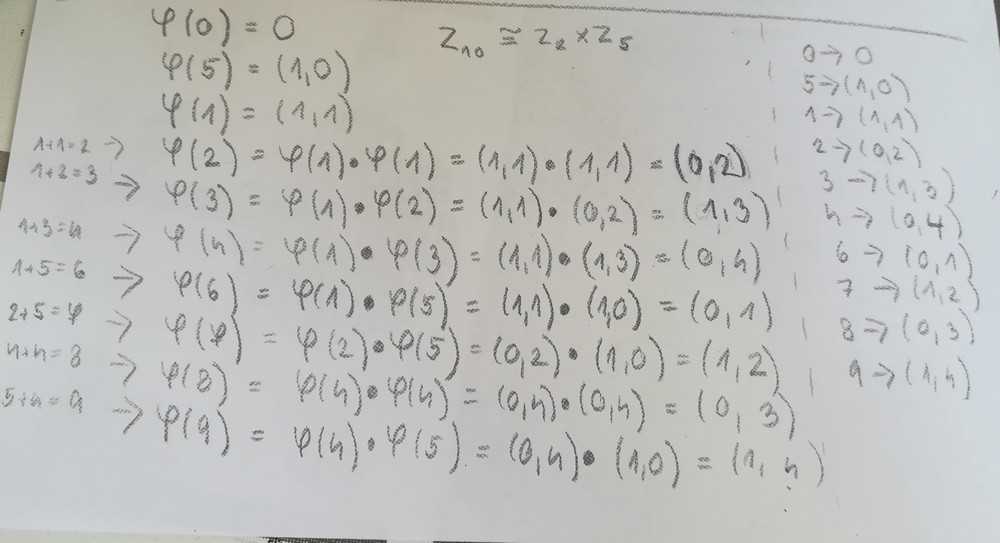 φ(0) = 0
Z₁₀ ≅ Z₂ × Z₅
φ(5) = (1,0)
φ(1) = (1,1)
1+1=2 → φ(2) = φ(1)•φ(1) = (1,1)•(1,1) = (0,2)
1+2=3 → φ(3) = φ(1)•φ(2) = (1,1)•(0,2) = (1,3)
1+3=4 → φ(4) = φ(1)•φ(3) = (1,1)•(1,3) = (0,4)
1+5=6 → φ(6) = φ(1)•φ(5) = (1,1)•(1,0) = (0,1)
2+5=7 → φ(7) = φ(2)•φ(5) = (0,2)•(1,0) = (1,2)
4+4=8 → φ(8) = φ(4)•φ(4) = (0,4)•(0,4) = (0,3)
5+4=9 → φ(9) = φ(4)•φ(5) = (0,4)•(1,0) = (1,4)
0→0
5→(1,0)
1→(1,1)
2→(0,2)
3→(1,3)
4→(0,4)
6→(0,1)
7→(1,2)
8→(0,3)
9→(1,4)